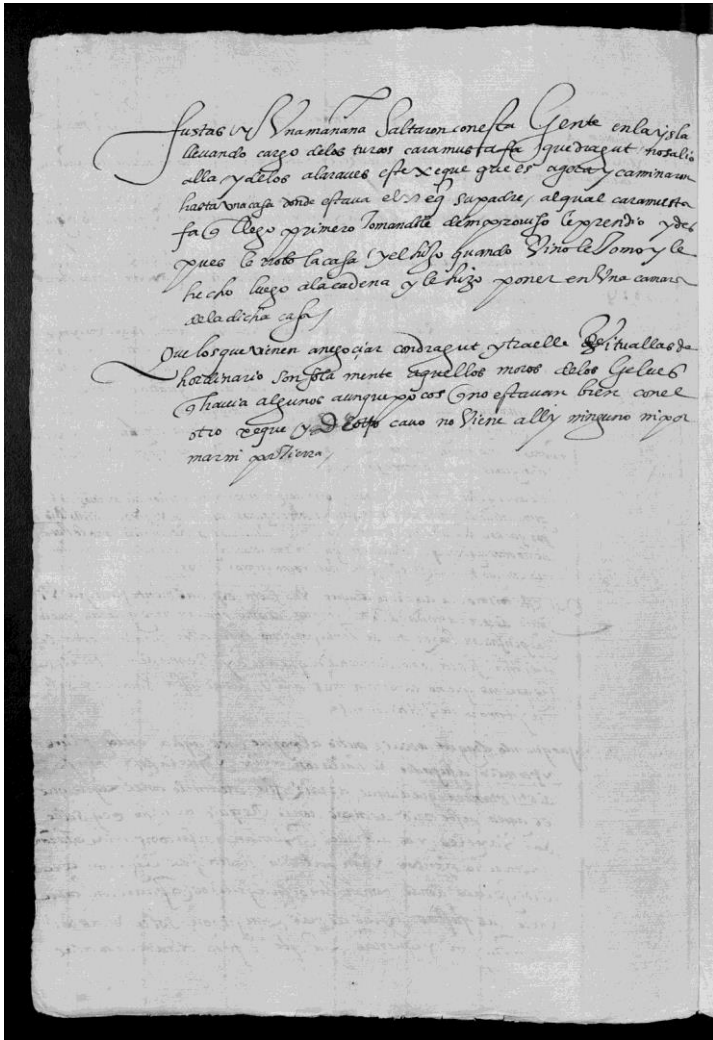 fustas y Una mañana Saltaron con esta Gente en la ysla
llevando cargo de los turcos caramustafa que dragut no salio
alla y de los alaraves este xeque que es agora y caminaron
hasta una casa donde estava el xeq su padre, al qual caramusta
fa q llego primero Tomandole de improviso le prendio y des
pues le robo la casa y el hijo quando Vino le Tomo y le
hecho luego a la cadena y le hizo poner en Una camara
de la dicha casa /
Que los que vienen a negociar con dragut y traelle Vituallas de
hordinario son sola mente aquellos moros de los Gelves
q havia algunos aunque pocos q no estavan bien con el
otro xeque y De otro cavo no Viene ally ninguno ni por
mar ni por Tierra /